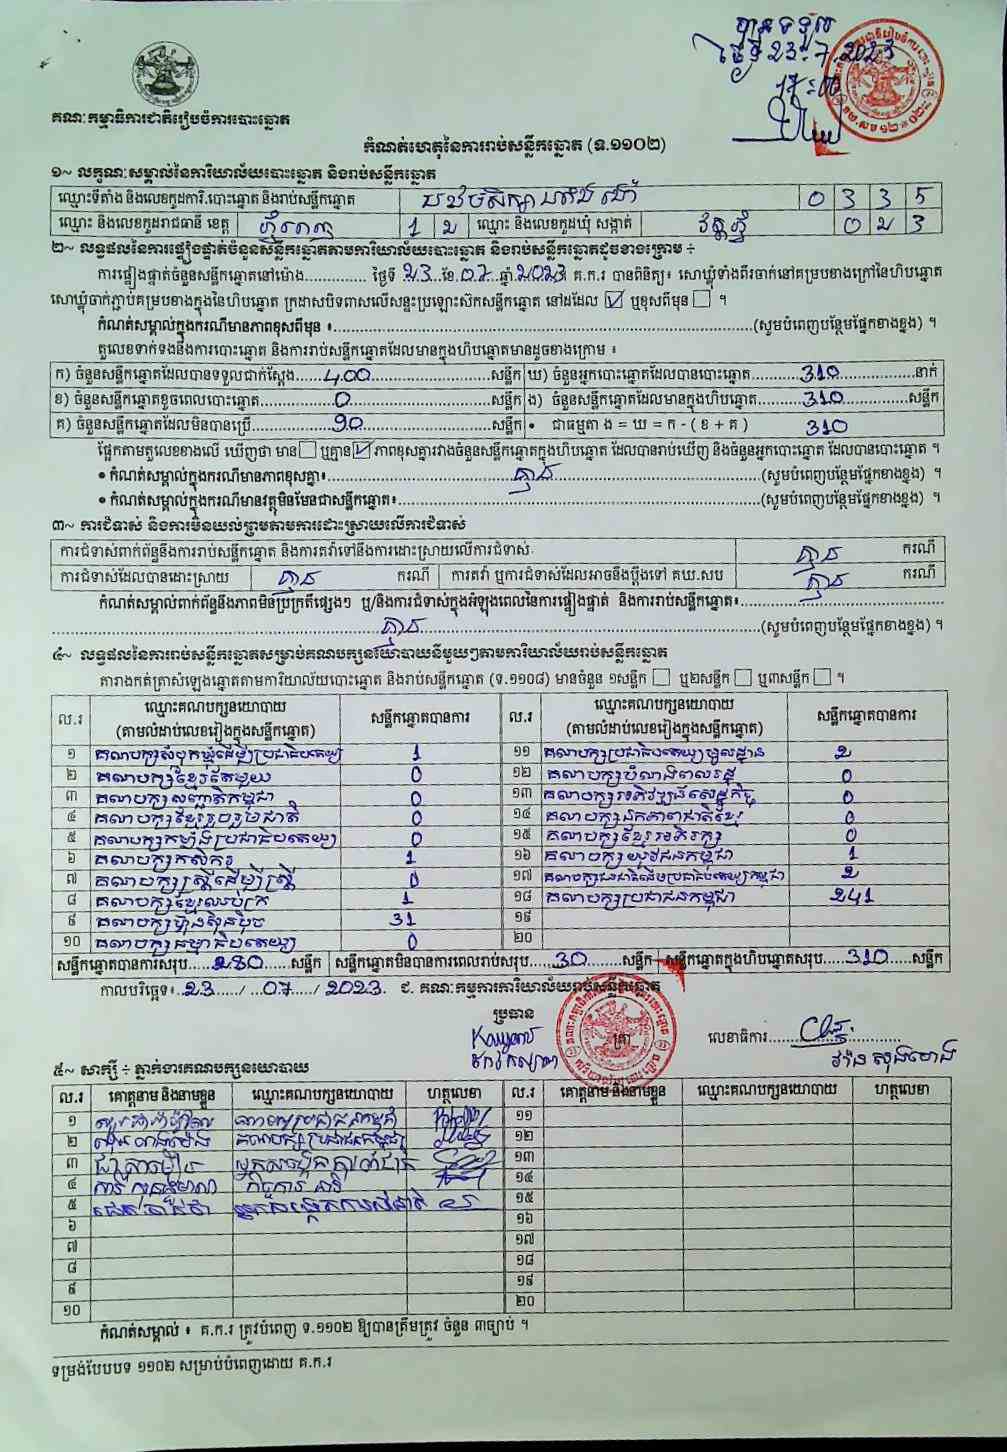 បានទទួល
ថ្ងៃទី 23.7.2023
17:00
គណៈកម្មាធិការជាតិរៀបចំការបោះឆ្នោត
កំណត់ហេតុនៃការរាប់សន្លឹកឆ្នោត (ទ.១១០២)
១~ លក្ខណៈសម្គាល់នៃការិយាល័យបោះឆ្នោត និងរាប់សន្លឹកឆ្នោត
ឈ្មោះទីតាំង និងលេខកូដការិ.បោះឆ្នោត និងរាប់សន្លឹកឆ្នោត 0 3 3 5
ឈ្មោះ និងលេខកូដរាជធានី ខេត្ត ភ្នំពេញ 1 2 ឈ្មោះ និងលេខកូដឃុំ សង្កាត់ វត្តភ្នំ 0 2 3
២~ លទ្ធផលនៃការផ្ទៀងផ្ទាត់ចំនួនសន្លឹកឆ្នោតតាមការិយាល័យបោះឆ្នោត និងរាប់សន្លឹកឆ្នោតដូចខាងក្រោម ÷
ការផ្ទៀងផ្ទាត់ចំនួនសន្លឹកឆ្នោតនៅម៉ោង............... ថ្ងៃទី 23 ខែ 07 ឆ្នាំ 2023 គ.ក.រ បានពិនិត្យ៖ សោឃ្លុំទាំងពីរចាក់នៅគម្របខាងក្រៅនៃហិបឆ្នោត
សោឃ្លុំចាក់ភ្ជាប់គម្របខាងក្នុងនៃហិបឆ្នោត ក្រដាសបិទពាសលើសន្ទះប្រឡោះសិកសន្លឹកឆ្នោត នៅដដែល ☑ ឬខុសពីមុន ☐ ។
កំណត់សម្គាល់ក្នុងករណីមានភាពខុសពីមុន ៖...............(សូមបំពេញបន្ថែមផ្នែកខាងខ្នង) ។
តួលេខទាក់ទងនឹងការបោះឆ្នោត និងការរាប់សន្លឹកឆ្នោតដែលមានក្នុងហិបឆ្នោតមានដូចខាងក្រោម ៖
ក) ចំនួនសន្លឹកឆ្នោតដែលបានទទួលជាក់ស្តែង......400......សន្លឹក ឃ) ចំនួនអ្នកបោះឆ្នោតដែលបានបោះឆ្នោត......310......នាក់
ខ) ចំនួនសន្លឹកឆ្នោតខូចពេលបោះឆ្នោត......0......សន្លឹក ង) ចំនួនសន្លឹកឆ្នោតដែលមានក្នុងហិបឆ្នោត......310......សន្លឹក
គ) ចំនួនសន្លឹកឆ្នោតដែលមិនបានប្រើ......90......សន្លឹក • ជាធម្មតា ង = ឃ = ក - ( ខ + គ ) 310
ផ្អែកតាមតួលេខខាងលើ ឃើញថា មាន ☐ ឬគ្មាន ☑ ភាពខុសគ្នារវាងចំនួនសន្លឹកឆ្នោតក្នុងហិបឆ្នោត ដែលបានរាប់ឃើញ និងចំនួនអ្នកបោះឆ្នោត ដែលបានបោះឆ្នោត ។
• កំណត់សម្គាល់ក្នុងករណីមានភាពខុសគ្នា៖......គ្មាន......(សូមបំពេញបន្ថែមផ្នែកខាងខ្នង) ។
• កំណត់សម្គាល់ក្នុងករណីមានវត្ថុមិនមែនជាសន្លឹកឆ្នោត៖............(សូមបំពេញបន្ថែមផ្នែកខាងខ្នង) ។
៣~ ការជំទាស់ និងការមិនយល់ព្រមតាមការដោះស្រាយលើការជំទាស់
ការជំទាស់ពាក់ព័ន្ធនឹងការរាប់សន្លឹកឆ្នោត និងការតវ៉ាទៅនឹងការដោះស្រាយលើការជំទាស់ គ្មាន ករណី
ការជំទាស់ដែលបានដោះស្រាយ គ្មាន ករណី ការតវ៉ា ឬការជំទាស់ដែលអាចនឹងប្តឹងទៅ គឃ.សប គ្មាន ករណី
កំណត់សម្គាល់ពាក់ព័ន្ធនឹងភាពមិនប្រក្រតីផ្សេងៗ ឬ/និងការជំទាស់ក្នុងអំឡុងពេលនៃការផ្ទៀងផ្ទាត់ និងការរាប់សន្លឹកឆ្នោត៖............
......គ្មាន......(សូមបំពេញបន្ថែមផ្នែកខាងខ្នង) ។
៤~ លទ្ធផលនៃការរាប់សន្លឹកឆ្នោតសម្រាប់គណបក្សនយោបាយនីមួយៗតាមការិយាល័យរាប់សន្លឹកឆ្នោត
តារាងកត់ត្រាសំឡេងឆ្នោតតាមការិយាល័យបោះឆ្នោត និងរាប់សន្លឹកឆ្នោត (ទ.១១០៨) មានចំនួន ១សន្លឹក ☐ ឬ២សន្លឹក ☐ ឬ៣សន្លឹក ☐ ។
ល.រ ឈ្មោះគណបក្សនយោបាយ (តាមលំដាប់លេខរៀងក្នុងសន្លឹកឆ្នោត) សន្លឹកឆ្នោតបានការ ល.រ ឈ្មោះគណបក្សនយោបាយ (តាមលំដាប់លេខរៀងក្នុងសន្លឹកឆ្នោត) សន្លឹកឆ្នោតបានការ
១ គណបក្សសំបុកឃ្មុំដើម្បីប្រជាធិបតេយ្យ 1 ១១ គណបក្សប្រជាធិបតេយ្យមូលដ្ឋាន 2
២ គណបក្សខ្មែរតែមួយ 0 ១២ គណបក្សបំណងពលរដ្ឋ 0
៣ គណបក្សសញ្ជាតិកម្ពុជា 0 ១៣ គណបក្សអភិវឌ្ឍន៍សេដ្ឋកិច្ច 0
៤ គណបក្សខ្មែររួបរួមជាតិ 0 ១៤ គណបក្សឯកភាពជាតិខ្មែរ 0
៥ គណបក្សកម្លាំងប្រជាធិបតេយ្យ 0 ១៥ គណបក្សខ្មែរអភិរក្ស 0
៦ គណបក្សកសិករ 1 ១៦ គណបក្សយុវជនកម្ពុជា 1
៧ គណបក្សស្រ្តីដើម្បីស្ត្រី 0 ១៧ គណបក្សជនជាតិដើមប្រជាធិបតេយ្យកម្ពុជា 2
៨ គណបក្សខ្មែរឈប់ក្រ 1 ១៨ គណបក្សប្រជាជនកម្ពុជា 241
៩ គណបក្សហ៊្វុនស៊ិនប៉ិច 31 ១៩
១០ គណបក្សធម្មាធិបតេយ្យ 0 ២០
សន្លឹកឆ្នោតបានការសរុប.....280.....សន្លឹក សន្លឹកឆ្នោតមិនបានការពេលរាប់សរុប.....30.....សន្លឹក សន្លឹកឆ្នោតក្នុងហិបឆ្នោតសរុប.....310.....សន្លឹក
កាលបរិច្ឆេទ៖..23..../...07..../ 2023. ជ. គណៈកម្មការការិយាល័យរាប់សន្លឹកឆ្នោត
ប្រធាន ត្រា លេខាធិការ
៥~ សាក្សី ÷ ភ្នាក់ងារគណបក្សនយោបាយ
ល.រ គោត្តនាម និងនាមខ្លួន ឈ្មោះគណបក្សនយោបាយ ហត្ថលេខា ល.រ គោត្តនាម និងនាមខ្លួន ឈ្មោះគណបក្សនយោបាយ ហត្ថលេខា
១ គណបក្សប្រជាជនកម្ពុជា ១១
២ គណបក្សប្រជាជនកម្ពុជា ១២
៣ ១៣
៤ ១៤
៥ ១៥
៦ ១៦
៧ ១៧
៨ ១៨
៩ ១៩
១០ ២០
កំណត់សម្គាល់ ៖ គ.ក.រ ត្រូវបំពេញ ទ.១១០២ ឱ្យបានត្រឹមត្រូវ ចំនួន ៣ច្បាប់ ។
ទម្រង់បែបបទ ១១០២ សម្រាប់បំពេញដោយ គ.ក.រ